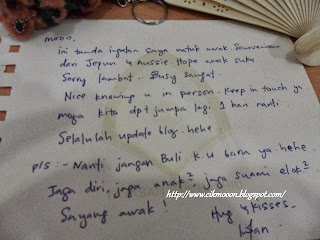 ini tanda ingatan saya untuk awak. Souvenir
dari Jepun & Aussie. Hope awak suka
Sorry lambat. Busy sangat.
Nice knowing u in person. Keep in touch ya
moga kita dpt jumpa lagi 1 hari nanti.
Selalulah update blog. hehe.
p/s :- Nanti jangan Bali k.u baru ya. hehe.
Jaga diri, jaga anak², jaga suami elok².
http://www.cikmooon.blogspot.com/
Sayang awak!
Hug & Kisses.